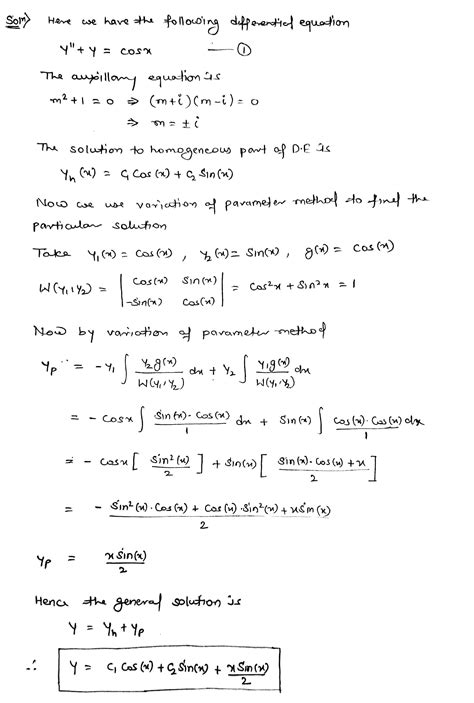 Soln) Here we have the following differential equation
y'' + y = cosx — ①
The auxillary equation is
m² + 1 = 0 ⇒ (m+i)(m-i) = 0
⇒ m = ± i
The solution to homogeneous part of D.E is
Yh(x) = C1 Cos(x) + C2 Sin(x)
Now we use variation of parameter method to find the
particular solution
Take y1(x) = Cos(x) , y2(x) = Sin(x) , g(x) = Cos(x)
W(y1, y2) = | Cos(x) Sin(x) ; -Sin(x) Cos(x) | = Cos²x + Sin²x = 1
Now by variation of parameter method
Yp = -y1 ∫ y2 g(x) / W(y1, y2) dx + y2 ∫ y1 g(x) / W(y1, y2) dx
= - Cosx ∫ Sin(x)·Cos(x) / 1 dx + Sin(x) ∫ Cos(x)·Cos(x) dx / 1
= - Cosx [ Sin²(x) / 2 ] + Sin(x) [ Sin(x)·Cos(x) + x / 2 ]
= - Sin²(x)·Cos(x) + Cos(x)·Sin²(x) + xSin(x) / 2
Yp = x Sin(x) / 2
Hence the general solution is
Y = Yh + Yp
∴ Y = C1 Cos(x) + C2 Sin(x) + x Sin(x) / 2